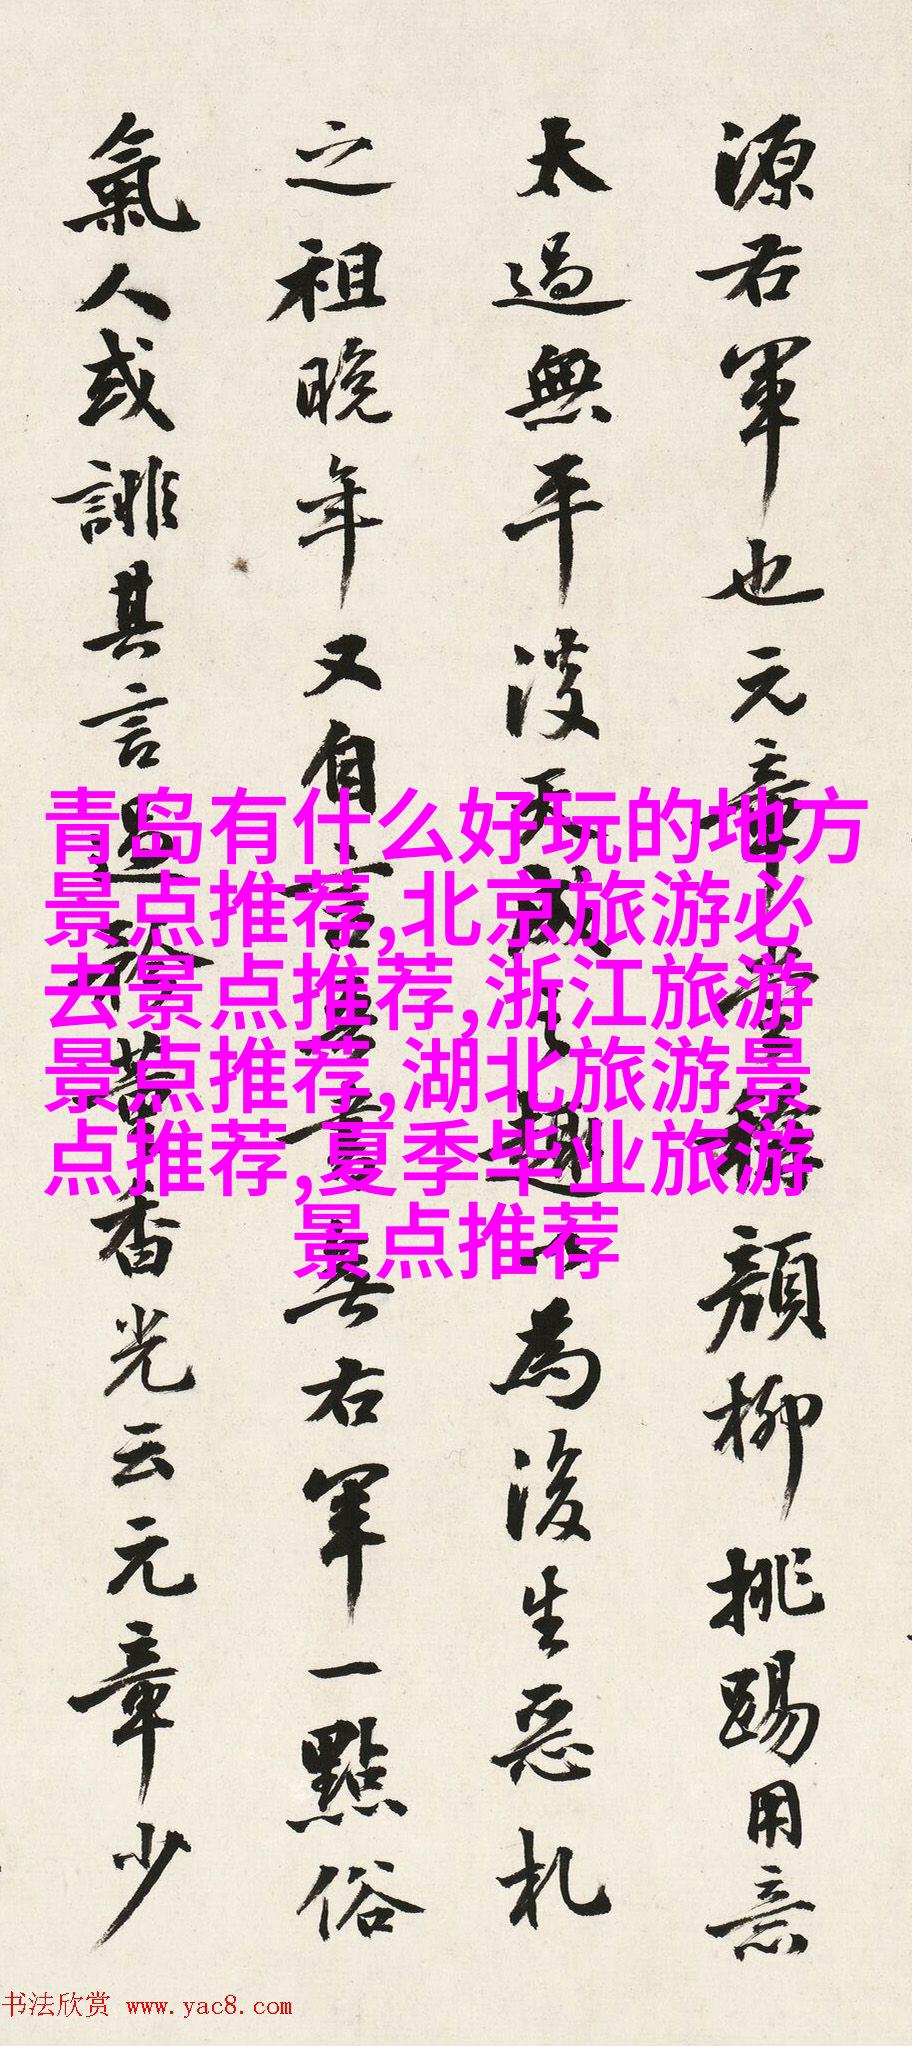 源右軍也元章稱顏柳挑踢用意
太過無平淡天成之趣為後生惡札
之祖晚年又自言吾書無右軍一點俗
氣人或誹其言過香光云元章少
青岛有什么好玩的地方
景点推荐,北京旅游必
去景点推荐,浙江旅游
景点推荐,湖北旅游景
点推荐,夏季毕业旅游
景点推荐
书法欣赏 www.yac8.com